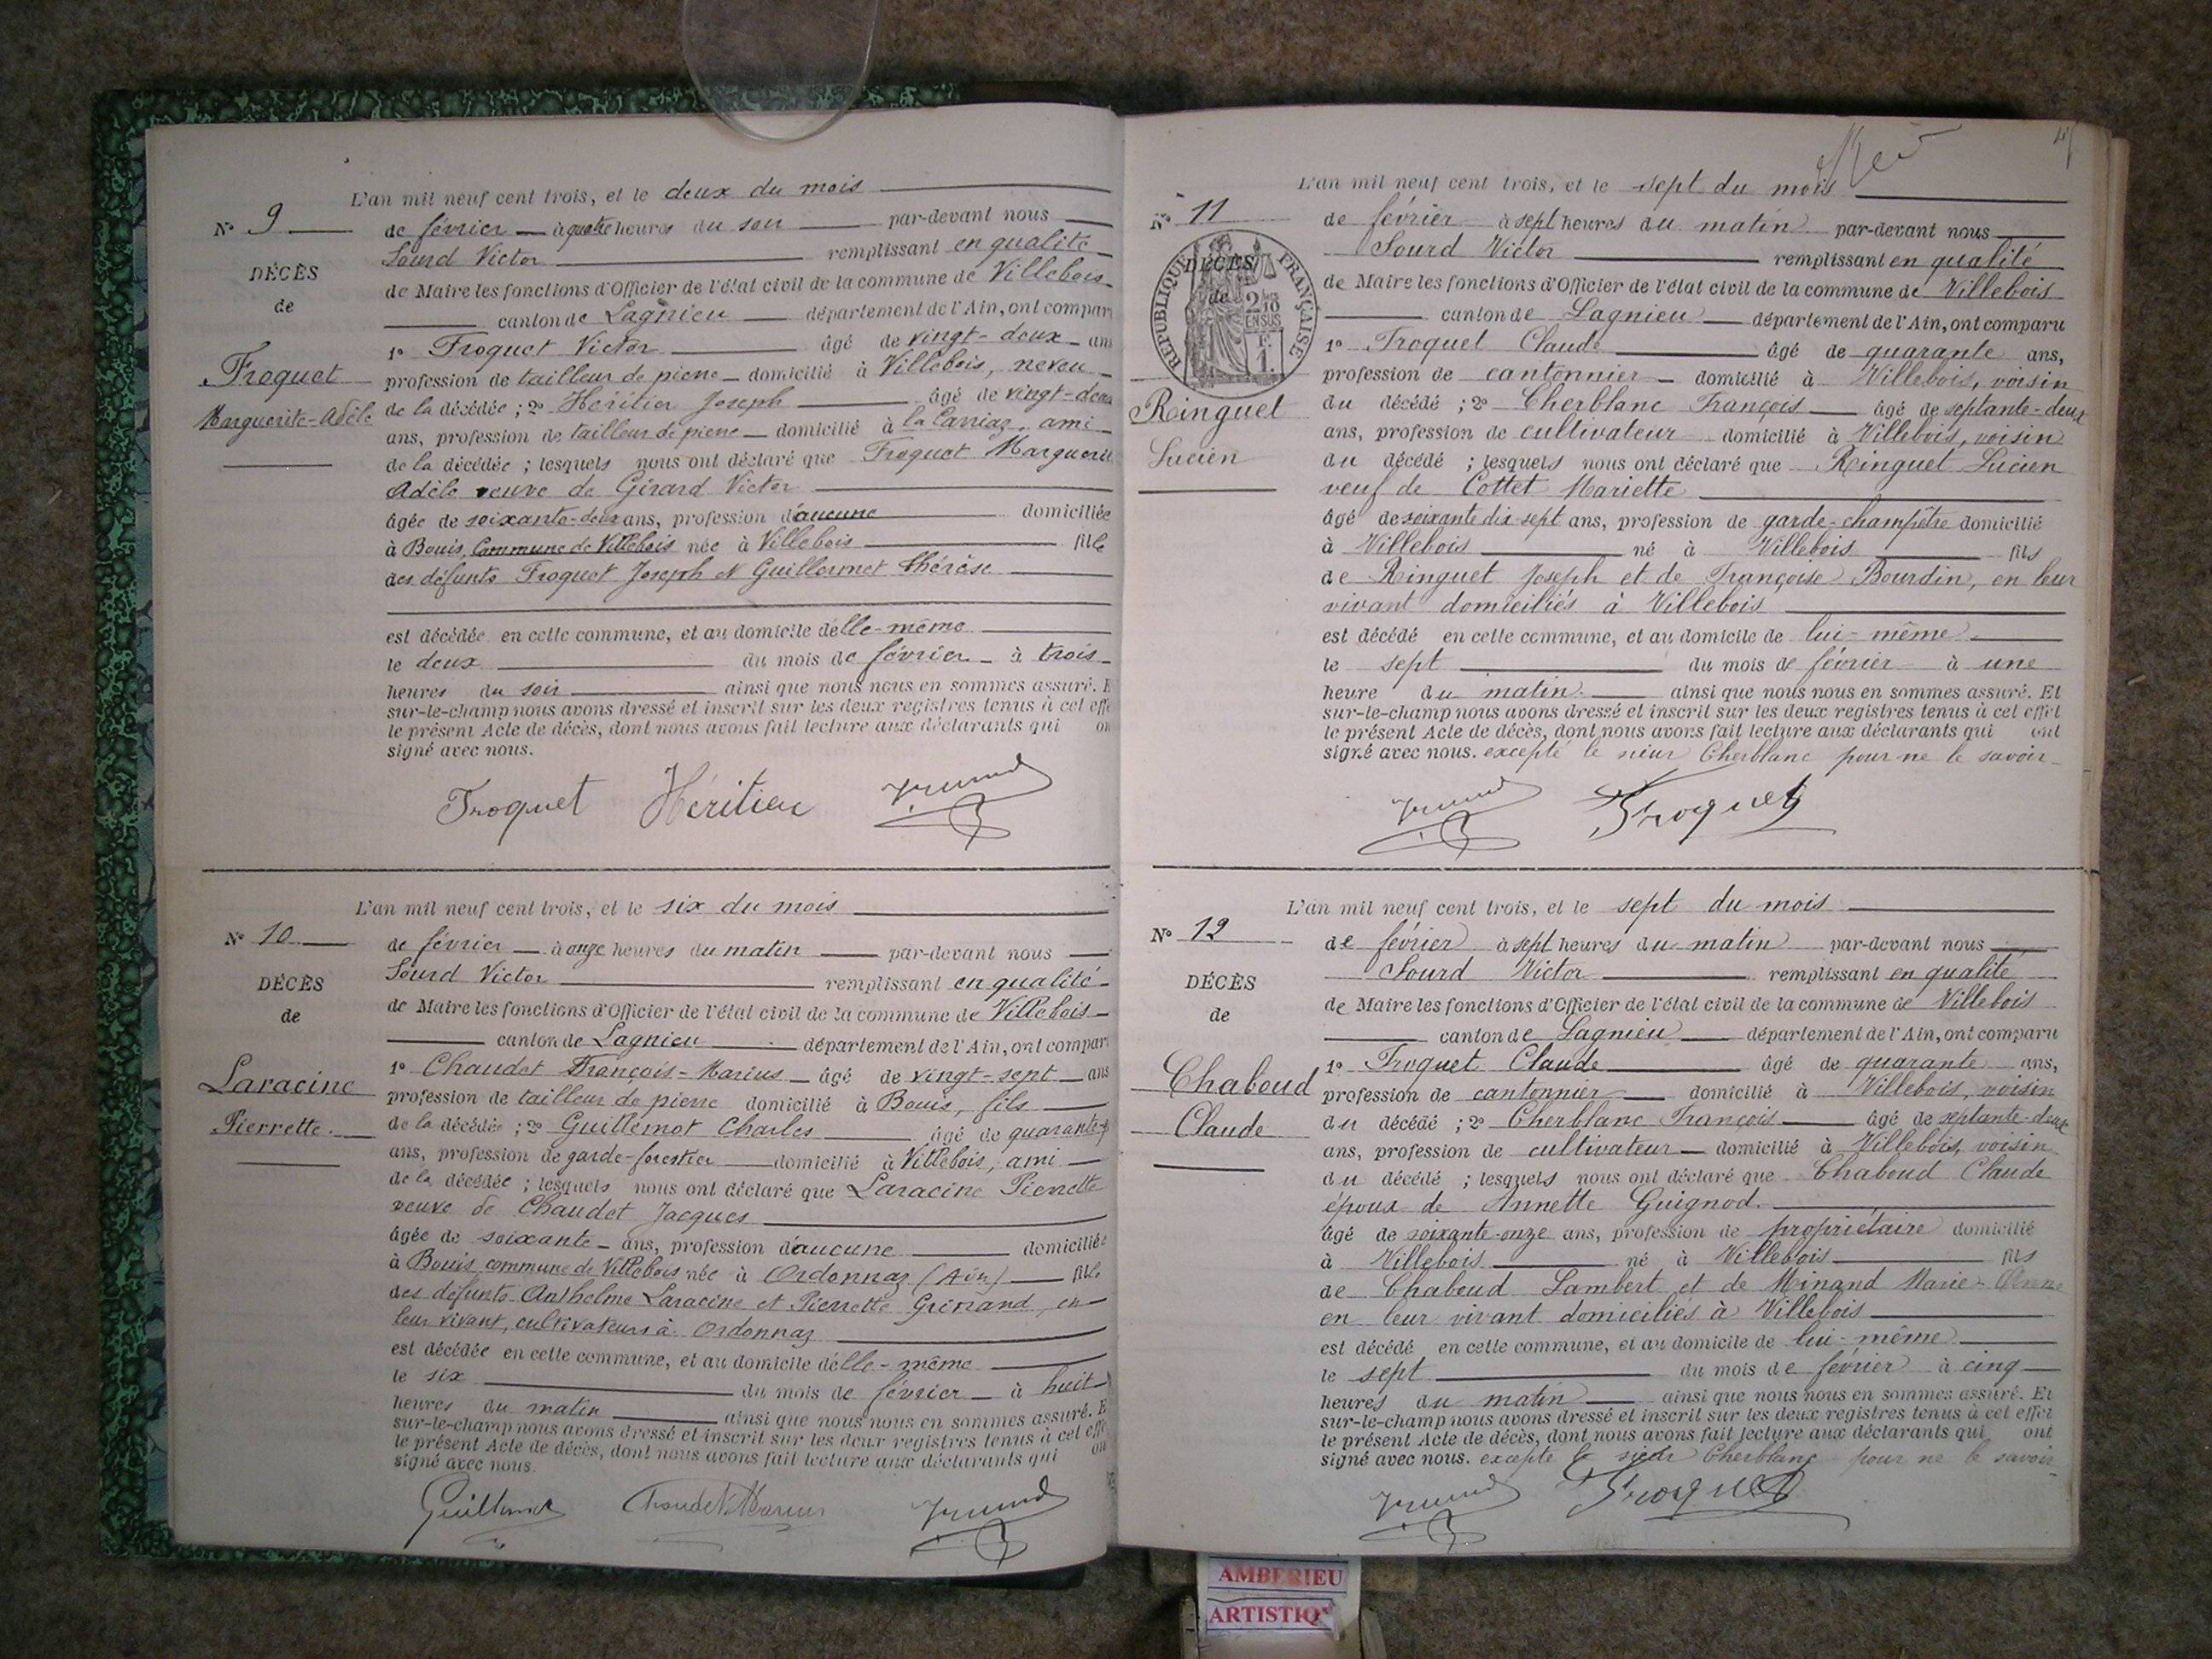 L'an mil neuf cent trois, et le deux du mois
N° 9
de février à quatre heures du soir par-devant nous
Sourd Victor remplissant en qualité
DÉCÈS
de Maire les fonctions d'Officier de l'état civil de la commune de Villebois
de
canton de Lagnieu département de l'Ain, ont compar
1° Troquet Victor âgé de vingt-deux an
Troquet
profession de tailleur de pierre domicilié à Villebois, neveu
Marguerite-Adèle
de la décédée ; 2° Héritier Joseph âgé de vingt-deux
ans, profession de tailleur de pierre domicilié à la Carriaz, ami
de la décédée ; lesquels nous ont déclaré que Troquet Marguerit
Adèle veuve de Girard Victor
âgée de soixante-deux ans, profession d'aucune domiciliée
à Bouis, Commune de Villebois née à Villebois fille
des défunts Troquet Joseph et Guillermet thérèse
est décédée en cette commune, et au domicile d'elle-même
le deux du mois de février à trois
heures du soir ainsi que nous nous en sommes assuré. E
sur-le-champ nous avons dressé et inscrit sur les deux registres tenus à cet effe
le présent Acte de décès, dont nous avons fait lecture aux déclarants qui on
signé avec nous.
Troquet Héritier
L'an mil neuf cent trois, et le six du mois
N° 10
de février à onze heures du matin par-devant nous
Sourd Victor remplissant en qualité
DÉCÈS
de Maire les fonctions d'Officier de l'état civil de la commune de Villebois
de
canton de Lagnieu département de l'Ain, ont compar
1° Chaudet François-Marius âgé de vingt-sept ans
Laracine
profession de tailleur de pierre domicilié à Bouis, fils
Pierrette
de la décédée ; 2° Guillemot Charles âgé de quarante
ans, profession de garde-forestier domicilié à Villebois, ami
de la décédée ; lesquels nous ont déclaré que Laracine Pierrette
veuve de Chaudet Jacques
âgée de soixante ans, profession d'aucune domiciliée
à Bouis, commune de Villebois née à Ordonnaz (Ain) fille
des défunts Anthelme Laracine et Pierrette Grinand, en
leur vivant, cultivateurs à Ordonnaz
est décédée en cette commune, et au domicile d'elle-même
le six du mois de février à huit
heures du matin ainsi que nous nous en sommes assuré. E
sur-le-champ nous avons dressé et inscrit sur les deux registres tenus à cet effe
le présent Acte de décès, dont nous avons fait lecture aux déclarants qui on
signé avec nous.
Guillemot Chaudet Marius
L'an mil neuf cent trois, et le sept du mois
N° 11
de février à sept heures du matin par-devant nous
Sourd Victor remplissant en qualité
DÉCÈS
RÉPUBLIQUE FRANÇAISE
de
2/10 EN SUS
F. 1.
de Maire les fonctions d'Officier de l'état civil de la commune de Villebois
canton de Lagnieu département de l'Ain, ont comparu
1° Troquet Claude âgé de quarante ans,
profession de cantonnier domicilié à Villebois, voisin
Ringuet
du décédé ; 2° Cherblanc François âgé de septante-deux
ans, profession de cultivateur domicilié à Villebois, voisin
Lucien
du décédé ; lesquels nous ont déclaré que Ringuet Lucien
veuf de Cottet Mariette
âgé de soixante dix-sept ans, profession de garde-champêtre domicilié
à Villebois né à Villebois fils
de Ringuet Joseph et de Françoise Bourdin, en leur
vivant domiciliés à Villebois
est décédé en cette commune, et au domicile de lui-même
le sept du mois de février à une
heure du matin ainsi que nous nous en sommes assuré. Et
sur-le-champ nous avons dressé et inscrit sur les deux registres tenus à cet effet
le présent Acte de décès, dont nous avons fait lecture aux déclarants qui ont
signé avec nous. excepté le sieur Cherblanc pour ne le savoir
Troquet
L'an mil neuf cent trois, et le sept du mois
N° 12
de février à sept heures du matin par-devant nous
Sourd Victor remplissant en qualité
DÉCÈS
de Maire les fonctions d'Officier de l'état civil de la commune de Villebois
de
canton de Lagnieu département de l'Ain, ont comparu
1° Troquet Claude âgé de quarante ans,
Chaboud
profession de cantonnier domicilié à Villebois, voisin
Claude
du décédé ; 2° Cherblanc François âgé de septante-deux
ans, profession de cultivateur domicilié à Villebois, voisin
du décédé ; lesquels nous ont déclaré que Chaboud Claude
époux de Annette Guignod.
âgé de soixante-onze ans, profession de propriétaire domicilié
à Villebois né à Villebois fils
de Chaboud Lambert et de Minand Marie-Anne
en leur vivant domiciliés à Villebois
est décédé en cette commune, et au domicile de lui-même
le sept du mois de février à cinq
heures du matin ainsi que nous nous en sommes assuré. Et
sur-le-champ nous avons dressé et inscrit sur les deux registres tenus à cet effet
le présent Acte de décès, dont nous avons fait lecture aux déclarants qui ont
signé avec nous. excepté le sieur Cherblanc pour ne le savoir
Troquet
AMBERIEU
ARTISTIQ